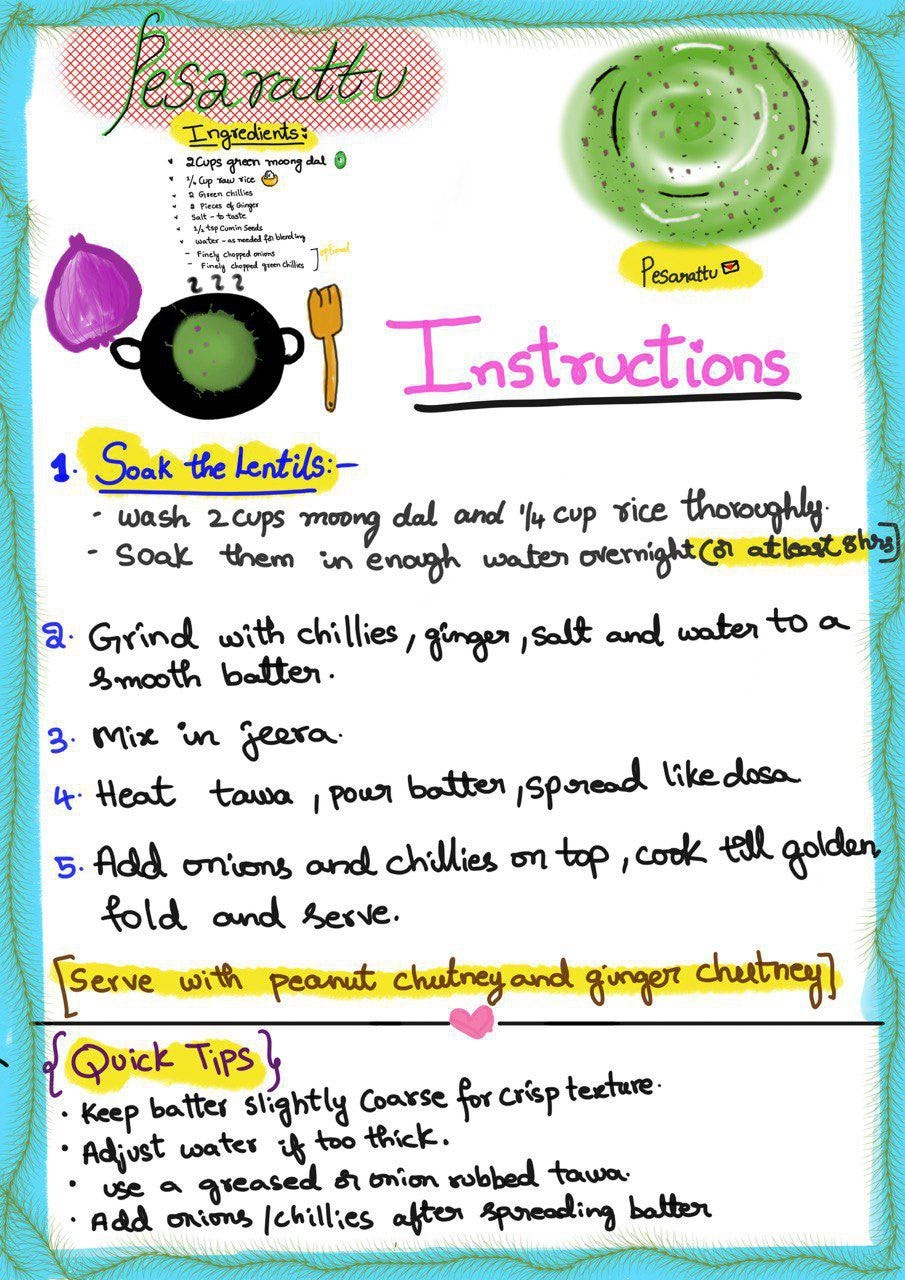 Pesarattu
Ingredients:
2 Cups green moong dal
1/4 Cup raw rice
2 Green chillies
2 Pieces of Ginger
Salt - to taste
1/2 tsp Cumin Seeds
water - as needed for blending
- Finely chopped onions
- Finely chopped green chillies
optional
Pesarattu
Instructions
1. Soak the Lentils:-
- wash 2 cups moong dal and 1/4 cup rice thoroughly.
- Soak them in enough water overnight (or atleast 8hrs)
2. Grind with chillies, ginger, salt and water to a
smooth batter.
3. Mix in jeera.
4. Heat tawa, pour batter, spread like dosa
5. Add onions and chillies on top, cook till golden,
fold and serve.
[Serve with peanut chutney and ginger chutney]
{Quick Tips}
• Keep batter slightly coarse for crisp texture.
• Adjust water if too thick.
• use a greased or onion rubbed tawa.
• Add onions/chillies after spreading batter